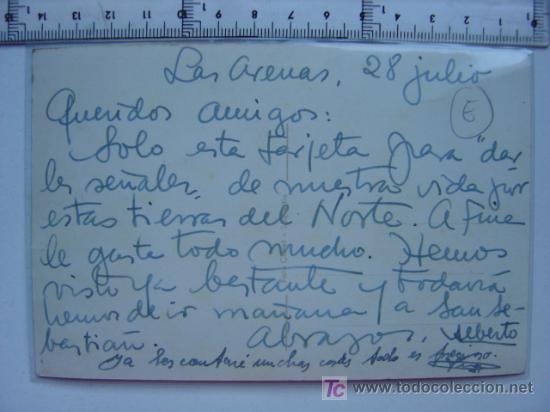 Las Arenas, 28 julio
E
Queridos amigos:
Solo esta tarjeta para "dar
les señales" de nuestra vida por
estas tierras del Norte. A
le gusta todo mucho. Hemos
visto ya bastante y todavía
hemos de ir mañana a San Se-
bastián. Abrazos, Alberto
Ya les contaré muchas cosas todo es
TC todocoleccion
http://www.todocoleccion.net